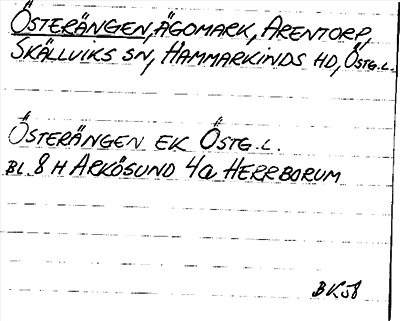 ÖSTERÄNGEN, ÄGOMARK, ARENTORP,
SKÄLLVIKS SN, HAMMARKINDS HD, ÖSTG.L.
ÖSTERÄNGEN EK ÖSTG.L.
BL. 8 H ARKÖSUND 4a HERRBORUM
BK58